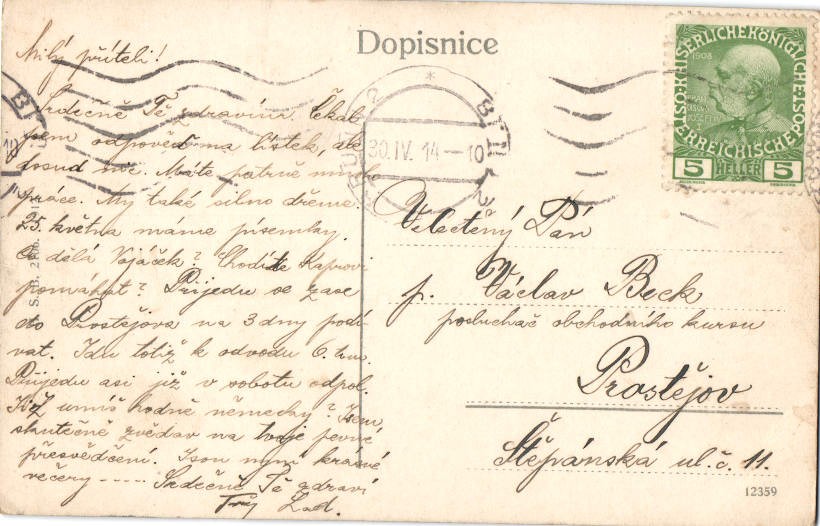 Dopisnice
Milý příteli!
Srdečně Tě zdravím. Čekal
jsem odpověď na lístek, ale
dosud nic. Máte patrně mnoho
práce. My také silno dřeme.
25. května máme písemky.
Co dělá Vojáček? Chodíte Kaprovi
pomáhat? Přijedu se zase
do Prostějova na 3 dny podí-
vat. Jdu totiž k odvodu 6. t.m.
Přijedu asi již v sobotu odpol.
Již umíš hodně německy? Jsem
skutečně zvědav na tvoje pevné
přesvědčení. Jsou nyní krásné
večery ----- Srdečně Tě zdraví
Lad.
Velectěný Pán
p. Václav Beck
posluchač obchodního kursu
Prostějov
Štěpánská ul. č. 11.
30. IV. 14 - 10
KAISERLICHE KÖNIGLICHE ÖSTERREICHISCHE POST
1908
5 HELLER 5
12359